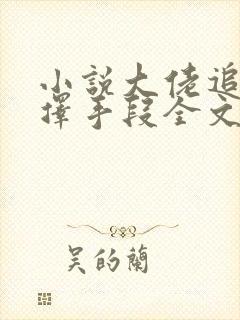 小説大佬追
擇手段全文
吴的蘭